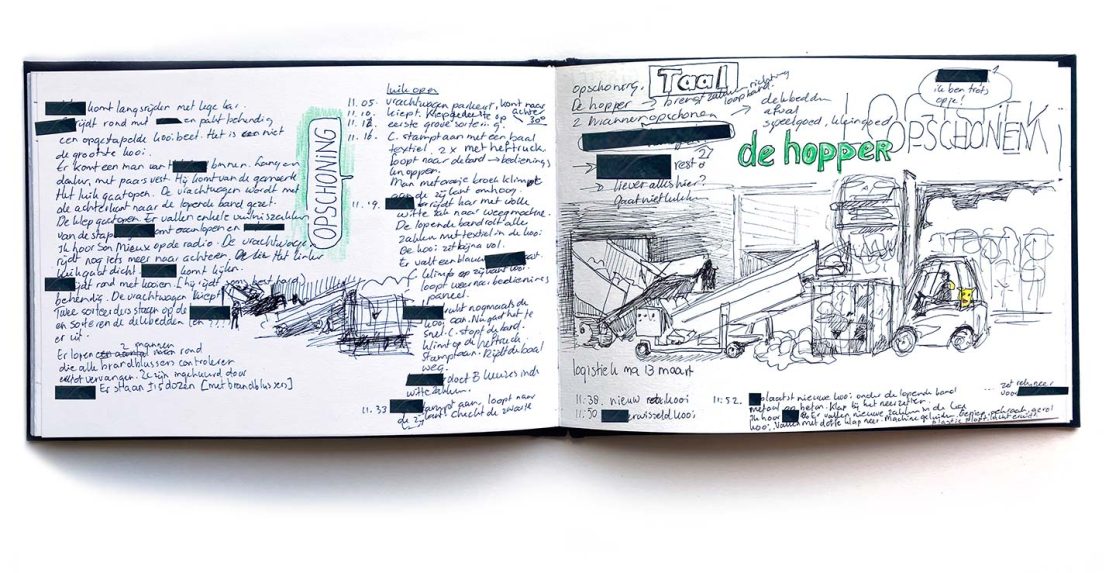 komt langsrijden met lege kar.
rijdt rond met en pakt behendig
een opgestapelde kooi beet. Het is een niet
de grootste kooi.
Er komt een man van binnen. Lang en
donker, met paars vest. Hij komt van de gemeente
Het luik gaat open. De vrachtwagen wordt met
de achterkant naar de lopende band gezet.
De klep gaat open. Er vallen enkele vuilniszakken
van de stapel. komt aanlopen en
Ik hoor Son Mieux op de radio. De vrachtwagen
rijdt nog iets meer naar achteren. Het linker
luik gaat dicht. komt kijken.
rijdt rond met kooien [hij rijdt heel hard]
behendig. De vrachtwagen kiept
Twee sorteerders staan op de
en sorteren de dekbedden [en ???]
er uit.
Er lopen 2 mannen rond
die alle brandblussers controleren
en vervangen. Ze zijn ingehuurd door
Er staan ± 5 dozen [met brandblussers]
OPSCHONING
luik open
11.05. vrachtwagen parkeert, komt naar achter
11.10. kiept. Klep
11.12. eerste grove sortering. 30°
11.16. C. stampt aan met een baal
textiel. 2 x met heftruck.
loopt naar de band → bedienings
knoppen.
Man met oranje broek klimpt
aan de zijkant omhoog.
11.19. rijdt kar met volle
witte zak naar weegmachine.
De lopende band rolt alle
zakken met textiel in de kooi
De kooi zit bijna vol.
Er valt een blauwe
klimt op zijkant kooi.
loopt weer naar bedienings
paneel.
drukt nogmaals de
kooi aan. Nu gaat het te
snel. C. stopt de band.
Klimt op de heftruck.
Stampt aan. Rijdt de baal
weg.
doet B keuzes in de
witte zakken.
11.33 stampt aan. loopt naar
de zij kooi. Checkt de zwarte
opschoning. Taal
De hopper → brengt zakken richting
loopband.
2 mannen opschonen → dekbedden
afval
speelgoed, kleingoed
rest
→ liever alles hier?
Gaat niet lukken
de hopper
OPSCHONEN
ik ben trots
op je!
logistiek ma 13 maart
11.38. nieuw kooi
11.50 verwisseld kooi
11.52. plaatst nieuwe kooi onder de lopende band
metaal op beton. Klap bij het neerzetten.
Ik hoor Er vallen nieuwe zakken in de lege
kooi. Vallen met doffe klap neer. Machine geluiden. Gepiep, gekraak, gerol
plastic
... zet rekening
voor